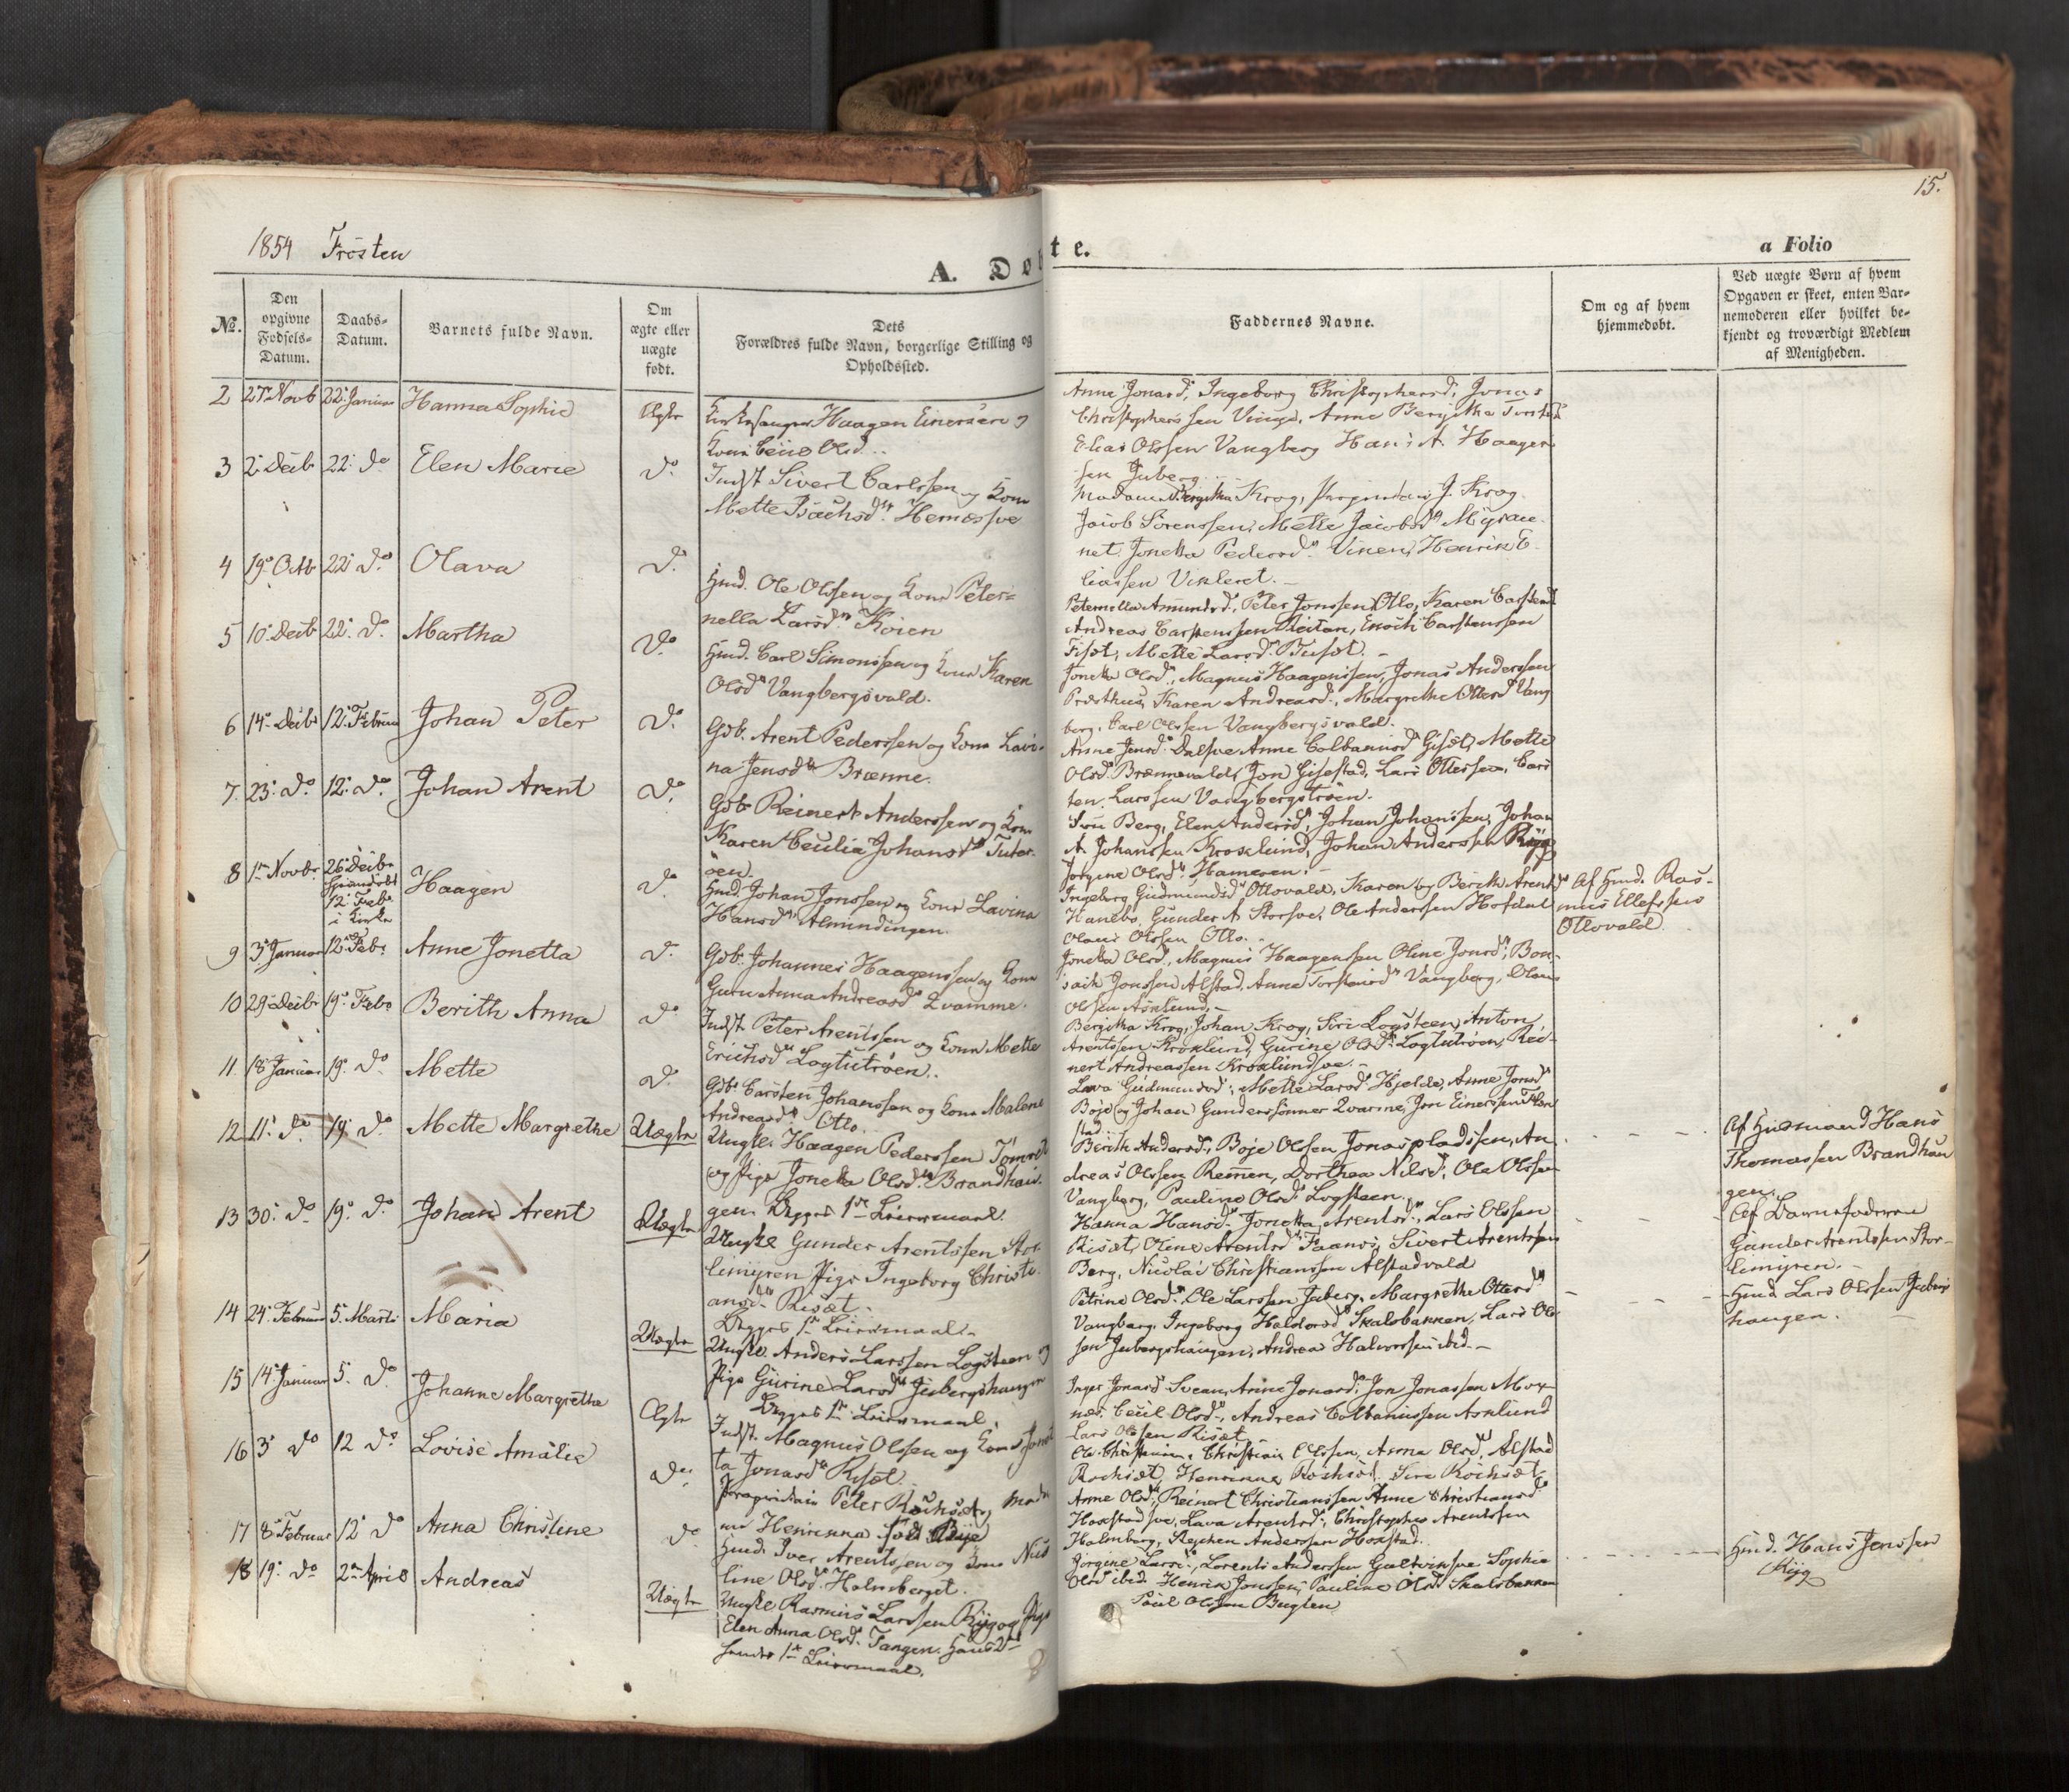 15.
1854 Frosten
A. Døbte.
a Folio
No.
Den opgivne Fødsels-Datum.
Daabs-Datum.
Barnets fulde Navn.
Om ægte eller uægte født.
Dets Forældres fulde Navn, borgerlige Stilling og Opholdssted.
Faddernes Navne.
Om og af hvem hjemmedøbt.
Ved uægte Børn af hvem Opgaven er skeet, enten Barnemoderen eller hvilket bekjendt og troværdigt Medlem af Menigheden.
2 27 Novb 22 Januar Hanna Sophie Ægte
Kirkesanger Haagen Einersen og
Kone Olsd.
Anne Jonasd, Ingeborg Christophersd, Jonas
Christopherssen Vinge, Anne Bergitha
Elias Olssen Vangberg Hans A. Haagen-
sen Juberg.
3 2 Decb 22 do Elen Marie do
Indst Sivert Carlssen og Kone
Mette Isachsd Hernesøve
Madame Bergitha Krog, J. Krog
Jacob Sørenssen, Mette Jacobsd Myrau-
net, Jonetta Pedersd Vinen, Henrik E-
liassen Vikleret.
4 19 Octb 22 do Olava do
Hmd. Ole Olssen og Kone Peter-
nella Larsd Køien
Peternella Amundsd, Peter Jonssen Otlo, Karen Carstensd
Andreas Carstenssen Reitan, Enoch Carstenssen
Fisæt, Mette Larsd
5 10 Decb 22 do Martha do
Hmd. Carl Simonssen og Kone Karen
Olsd Vangbergsvald.
Jonetta Olsd, Magnus Haagenssen, Jonas Anderssen
Presthus, Karen Andreasd, Margrethe Ottersd Vang
berg, Carl Olssen Vangbergsvald.
6 14 Decbr 12 Februar Johan Peter do
Gdb. Arent Pederssen og Kone Lavi-
na Jensd Brænne.
Anne Jensd Anne Colbannsd Gisæt, Mette
Olsd Brænnevald, Jon Gisestad, Lars Otterssen, Cars
ten Larssen Vangbergstrøen.
7. 23 do 12 do Johan Arent do
Gdb Reinert Anderssen og Kone
Karen Cecilia Johansd Tuter-
øen.
Berg, Elen Andersd, Johan Johanssen, Johan
A. Johanssen Kroxlund, Johan Anderssen Ryg
Jørgine Olsd Hameren.
8 1 Novbr 26 Decbr
12 Feb
i Kirke Haagen do
Hmd. Johan Jonssen og Kone Lavina
Hansd Almindingen.
Ingeborg Gudmundsd Otlovald, Karen og Berith Arentsd
Hanebo, Gunder A. Storsve, Ole Anderssen Hofdal
Olaus Olssen Otlo.
Af Hmd. Ras-
mus Ellefssen
Otlovald.
9 3 Januar 12 Feb. Anne Jonetta do
Gdb. Johannes Haagenssen og Kone
Guru Anna Andreasd Qvamme.
Jonetta Olsd, Magnus Haagenssen Oline Jonsd, Bon-
sach Jonssen Alstad, Anne Torstensd Vangberg, Olaus
Olssen Asklund.
10 29 Decbr 19 Febr Berith Anna do
Indst Peter Arentssen og Kone Mette
Erichsd Logtutrøen.
Bergitha Krog, Johan Krog, Siri Logsteen, Anton
Arentssen Kroxlund, Gurine Olsd Logtutrøen, Rei-
nert Andreassen Kroxlundsve.
11. 18 Januar 19 do Mette do
Gdb. Carsten Johanssen og Kone Malene
Andreasd Otlo.
Lava Gudmundsd, Mette Larsd Hjelde, Anne Jonsd
Bøje og Johan Gunderssønner Qvarme, Jon Einerssen
stad.
12 11 do 19 do Mette Margrethe Uægte
Ungk. Haagen Pederssen
og Pige Jonetta Olsd Brandhau-
gen. Begges 1ste Leiermaal.
Berith Andersd, Bøje Olssen Jonaspladssen, An-
dreas Olssen Remen, Dorthea Nilsd, Ole Olssen
Vangberg, Pauline Olsd Logsteen.
Af Huusmand Hans
Thomassen Brandhau
gen.
13 30 do 19 do Johan Arent Uægte
Ungk. Gunder Arentssen Stor-
limyren Pige Ingeborg Christi-
ansd Risæt.
Begges 1ste Leiermaal.
Hanna Hansd Jonetta Arentsd, Lars Olssen
Risæt, Oline Arentsd Faanes, Sivert Arentssen
Berg, Nicolai Christianssen Alstadvald
Af Barnefaderen
Gunder Arentssen Stor-
limyren.
14 24 Februar 5 Marts Maria Uægte
Ungk. Anders Larssen Logsteen og
Pige Gurine Larsd Jubergshaugen
Begges 1ste Leiermaal.
Petrine Olsd, Ole Larssen Juberg, Margrethe Ottersd
Vangberg, Ingeborg Haldorsd Skalsbakken, Lars Ol-
sen Jubergshaugen, Andreas Halvorssen ibid.
Hmd. Lars Olssen Jubergs
haugen.
15 14 Januar 5 do Johanne Margrethe Ægte
Indst. Magnus Olssen og Kone Jonet
ta Jonasd Risæt.
Inger Jonasd Svean, Anne Jonasd, Jon Jonassen Mox-
næs, Cecil Olsd, Andreas Colbanussen Asklund
Lars Olssen Risæt.
16 3 do 12 do Lovise Amalie do
Peter Rochsæt og Mada
me Henrikka født
Ole Christian, Christian Olssen, Anna Olsd, Alstad
Rochsæt, Henrikka Rochsæt, Siri Rochsæt.
17 8 Februar 12 do Anna Christine do
Hmd. Iver Arentssen og Kone Nico
line Olsd Holmberget.
Anne Olsd, Reinert Christianssen Anne Christiansd
Hoxstadsve, Lava Arentsd, Christopher Arentssen
Holmberg, Stephen Anderssen Hoxstad.
18 19 do 2 April Andreas Uægte
Ungk. Rasmus Larssen Ryg og Pige
Elen Anna Olsd Tangen. Hans 2det
hendes 1ste Leiermaal.
Jørgine Larsd, Lorents Anderssen Galtvinsve Sophie
Olsd ibid. Henrik Jonssen, Pauline Olsd Skalsbakken
Poul Olssen Buglen
Hmd. Hans Jenssen
Ryg